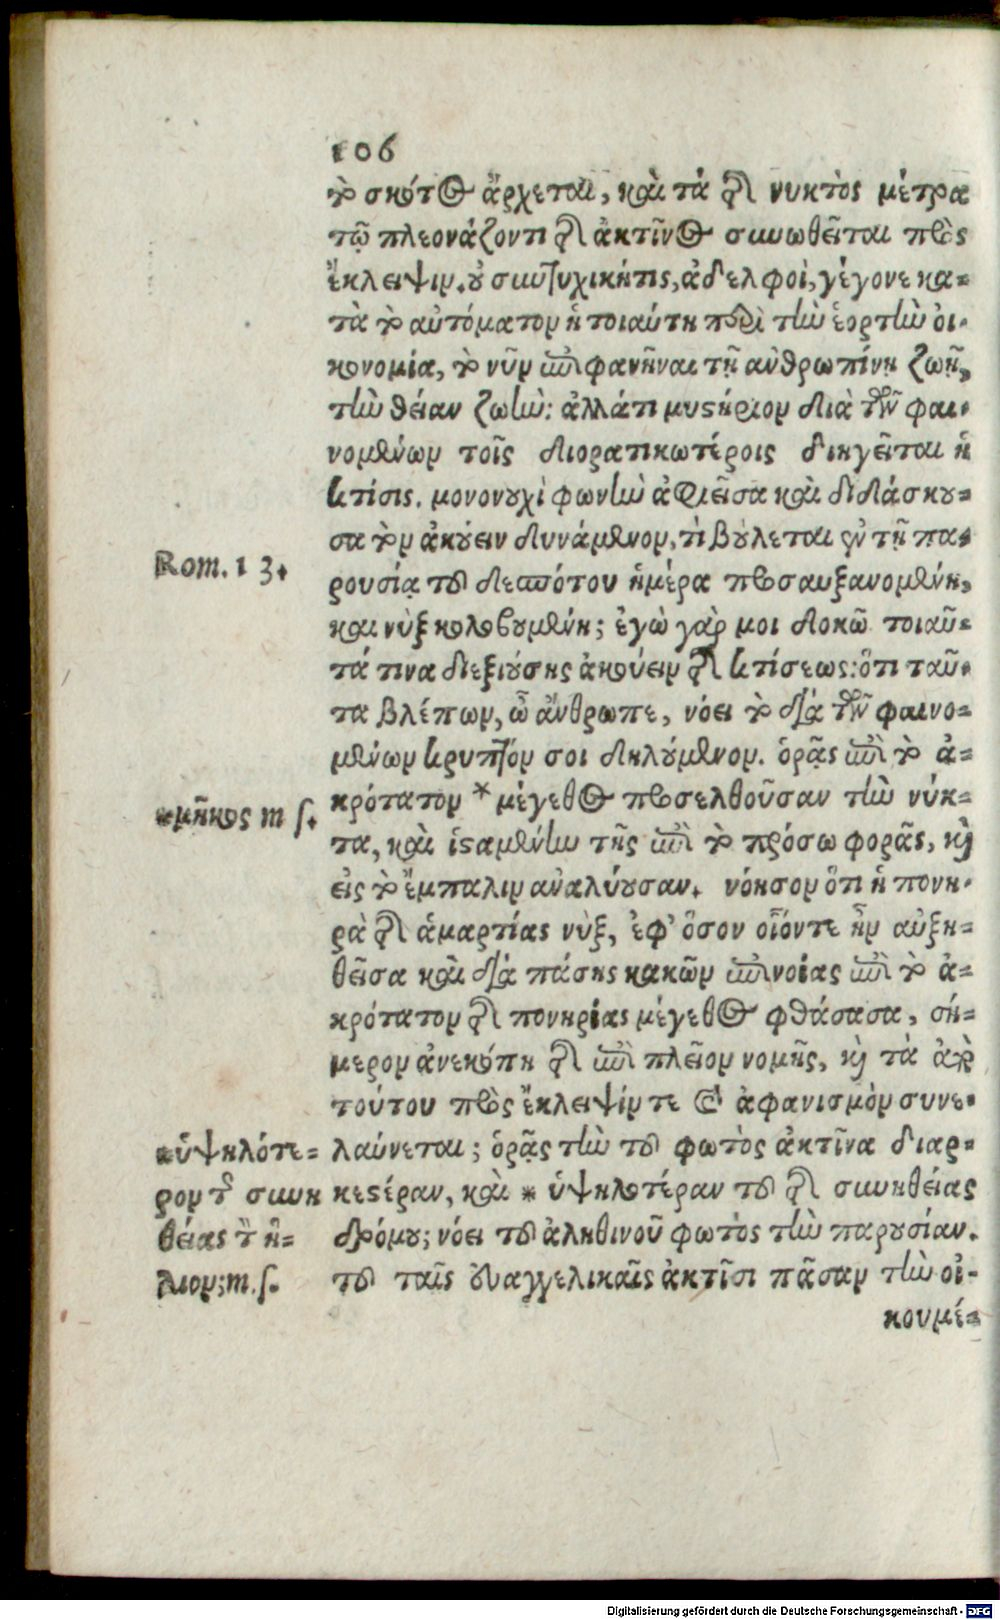 106
τὸ σκότος ἄρχεται, καὶ τὰ τῆς νυκτὸς μέτρα
τῷ πλεονάζοντι τῆς ἀκτῖνος συνωθεῖται πρὸς
ἔκλειψιν. οὐ συντυχική τις, ἀδελφοὶ, γέγονε κα=
τὰ τὸ αὐτόματον ἡ τοιαύτη περὶ τὴν ἑορτὴν οἰ=
κονομία, τὸ νῦν ἐπιφανῆναι τῇ ἀνθρωπίνῃ ζωῇ,
τὴν θείαν ζωήν: ἀλλά τι μυστήριον διὰ τῶν φαι=
νομένων τοῖς διορατικωτέροις διηγεῖται ἡ
κτίσις. μονονουχὶ φωνὴν ἀφιεῖσα καὶ διδάσκου=
σα τὸν ἀκούειν δυνάμενον, τὶ βούλεται ἐν τῇ πα=
Rom. 13.
ρουσίᾳ τοῦ δεσπότου ἡμέρα προσαυξανομένη,
και νὺξ κολοβουμένη; ἐγὼ γάρ μοι δοκῶ τοιαῦ=
τά τινα διεξιούσης ἀκούειν τῆς κτίσεως: ὅτι ταῦ=
τα βλέπων, ὦ ἄνθρωπε, νόει τὸ διὰ τῶν φαινο=
μένων κρυπτόν σοι δηλούμενον. ὁρᾷς ἐπὶ τὸ ἀ=
κρότατον * μέγεθος προσελθοῦσαν τὴν νύκ=
*μῆκος m s.
τα, καὶ ἱσταμένην τῆς ἐπὶ τὸ πρόσω φορᾶς, καὶ
εἰς τὸ ἔμπαλιν ἀναλύουσαν. νόησον ὅτι ἡ πονη=
ρὰ τῆς ἁμαρτίας νὺξ, ἐφ' ὅσον οἷόντε ἦν αὐξη=
θεῖσα καὶ διὰ πάσης κακῶν ἐπινοίας ἐπὶ τὸ ἀ=
κρότατον τῆς πονηρίας μέγεθος φθάσασα, σή=
μερον ἀνεκόπη τῆς ἐπὶ πλεῖον νομῆς, καὶ τὰ ἀπὸ
τούτου πρὸς ἔκλειψίν τε καὶ ἀφανισμὸν συνε=
λαύνεται; ὁρᾷς τὴν τοῦ φωτὸς ἀκτῖνα διαρ=
κεστέραν, καὶ * ὑψηλοτέραν τοῦ τῆς συνηθείας
δρόμου; νόει τοῦ ἀληθινοῦ φωτὸς τὴν παρουσίαν.
τοῦ ταῖς εὐαγγελικαῖς ἀκτῖσι πᾶσαν τὴν οἰ-
*ὑψηλότε=
ρον τῆς συνη
θείας τὸν ἥ=
λιον; m. s.
κουμέ=
Digitalisierung gefördert durch die Deutsche Forschungsgemeinschaft - DFG